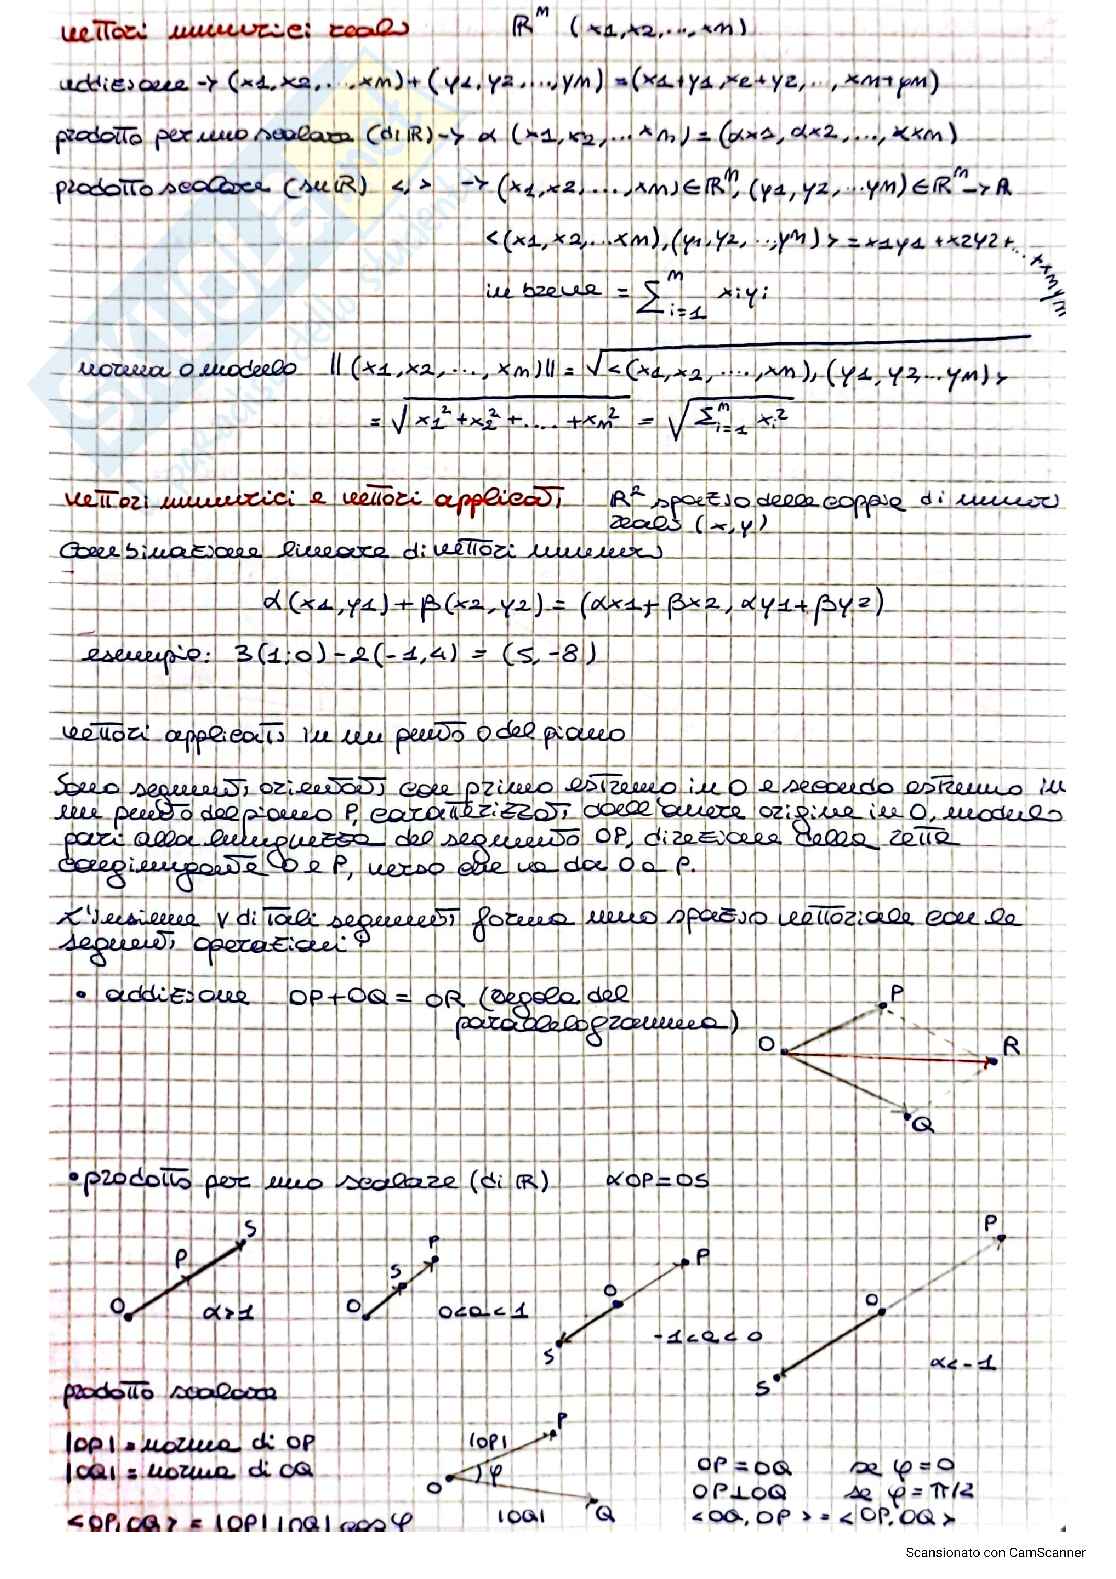 vettori numerici reali ℝᵐ (x1,x2,...,xm)
addizione → (x1,x2,...,xm)+(y1,y2,...,ym)=(x1+y1,x2+y2,...,xm+ym)
prodotto per uno scalare (di ℝ) → α (x1,x2,...xm)=(αx1,αx2,...,αxm)
prodotto scalare (su ℝ) <,> → (x1,x2,...,xm)∈ℝᵐ, (y1,y2,...ym)∈ℝᵐ→ℝ
<(x1,x2,...xm),(y1,y2,...,ym)> = x1y1+x2y2+...+xmym
in breve = Σᵢ₌₁ᵐ xiyi
norma o modulo ||(x1,x2,...,xm)|| = √<(x1,x2,....,xm),(y1,y2,...ym)>
= √x1²+x2²+....+xm² = √Σᵢ₌₁ᵐ xi²
vettori numerici e vettori applicati ℝ² spazio delle coppie di numeri
reali (x,y)
Combinazione lineare di vettori numerici
α(x1,y1)+β(x2,y2)=(αx1+βx2,αy1+βy2)
esempio: 3(1;0)-2(-1,4)=(5,-8)
vettori applicati in un punto O del piano
Sono segmenti orientati con primo estremo in O e secondo estremo in
un punto del piano P, caratterizzati dall'avere origine in O, modulo
pari alla lunghezza del segmento OP, direzione della retta
congiungente O e P, verso che va da O a P.
L'insieme V di tali segmenti forma uno spazio vettoriale con le
seguenti operazioni:
• addizione OP+OQ=OR (regola del
parallelogramma)
P
O
R
Q
• prodotto per uno scalare (di ℝ) αOP=OS
O P S α>1
O S P 0<α<1
S O P -1<α<0
S O P α<-1
prodotto scalare
|OP| = norma di OP
|OQ| = norma di OQ
<OP,OQ> = |OP| |OQ| cosφ
|OP| P
O φ
|OQ| Q
OP=OQ se φ=0
OP⊥OQ se φ=π/2
<OQ,OP>=<OP,OQ>
Scansionato con CamScanner